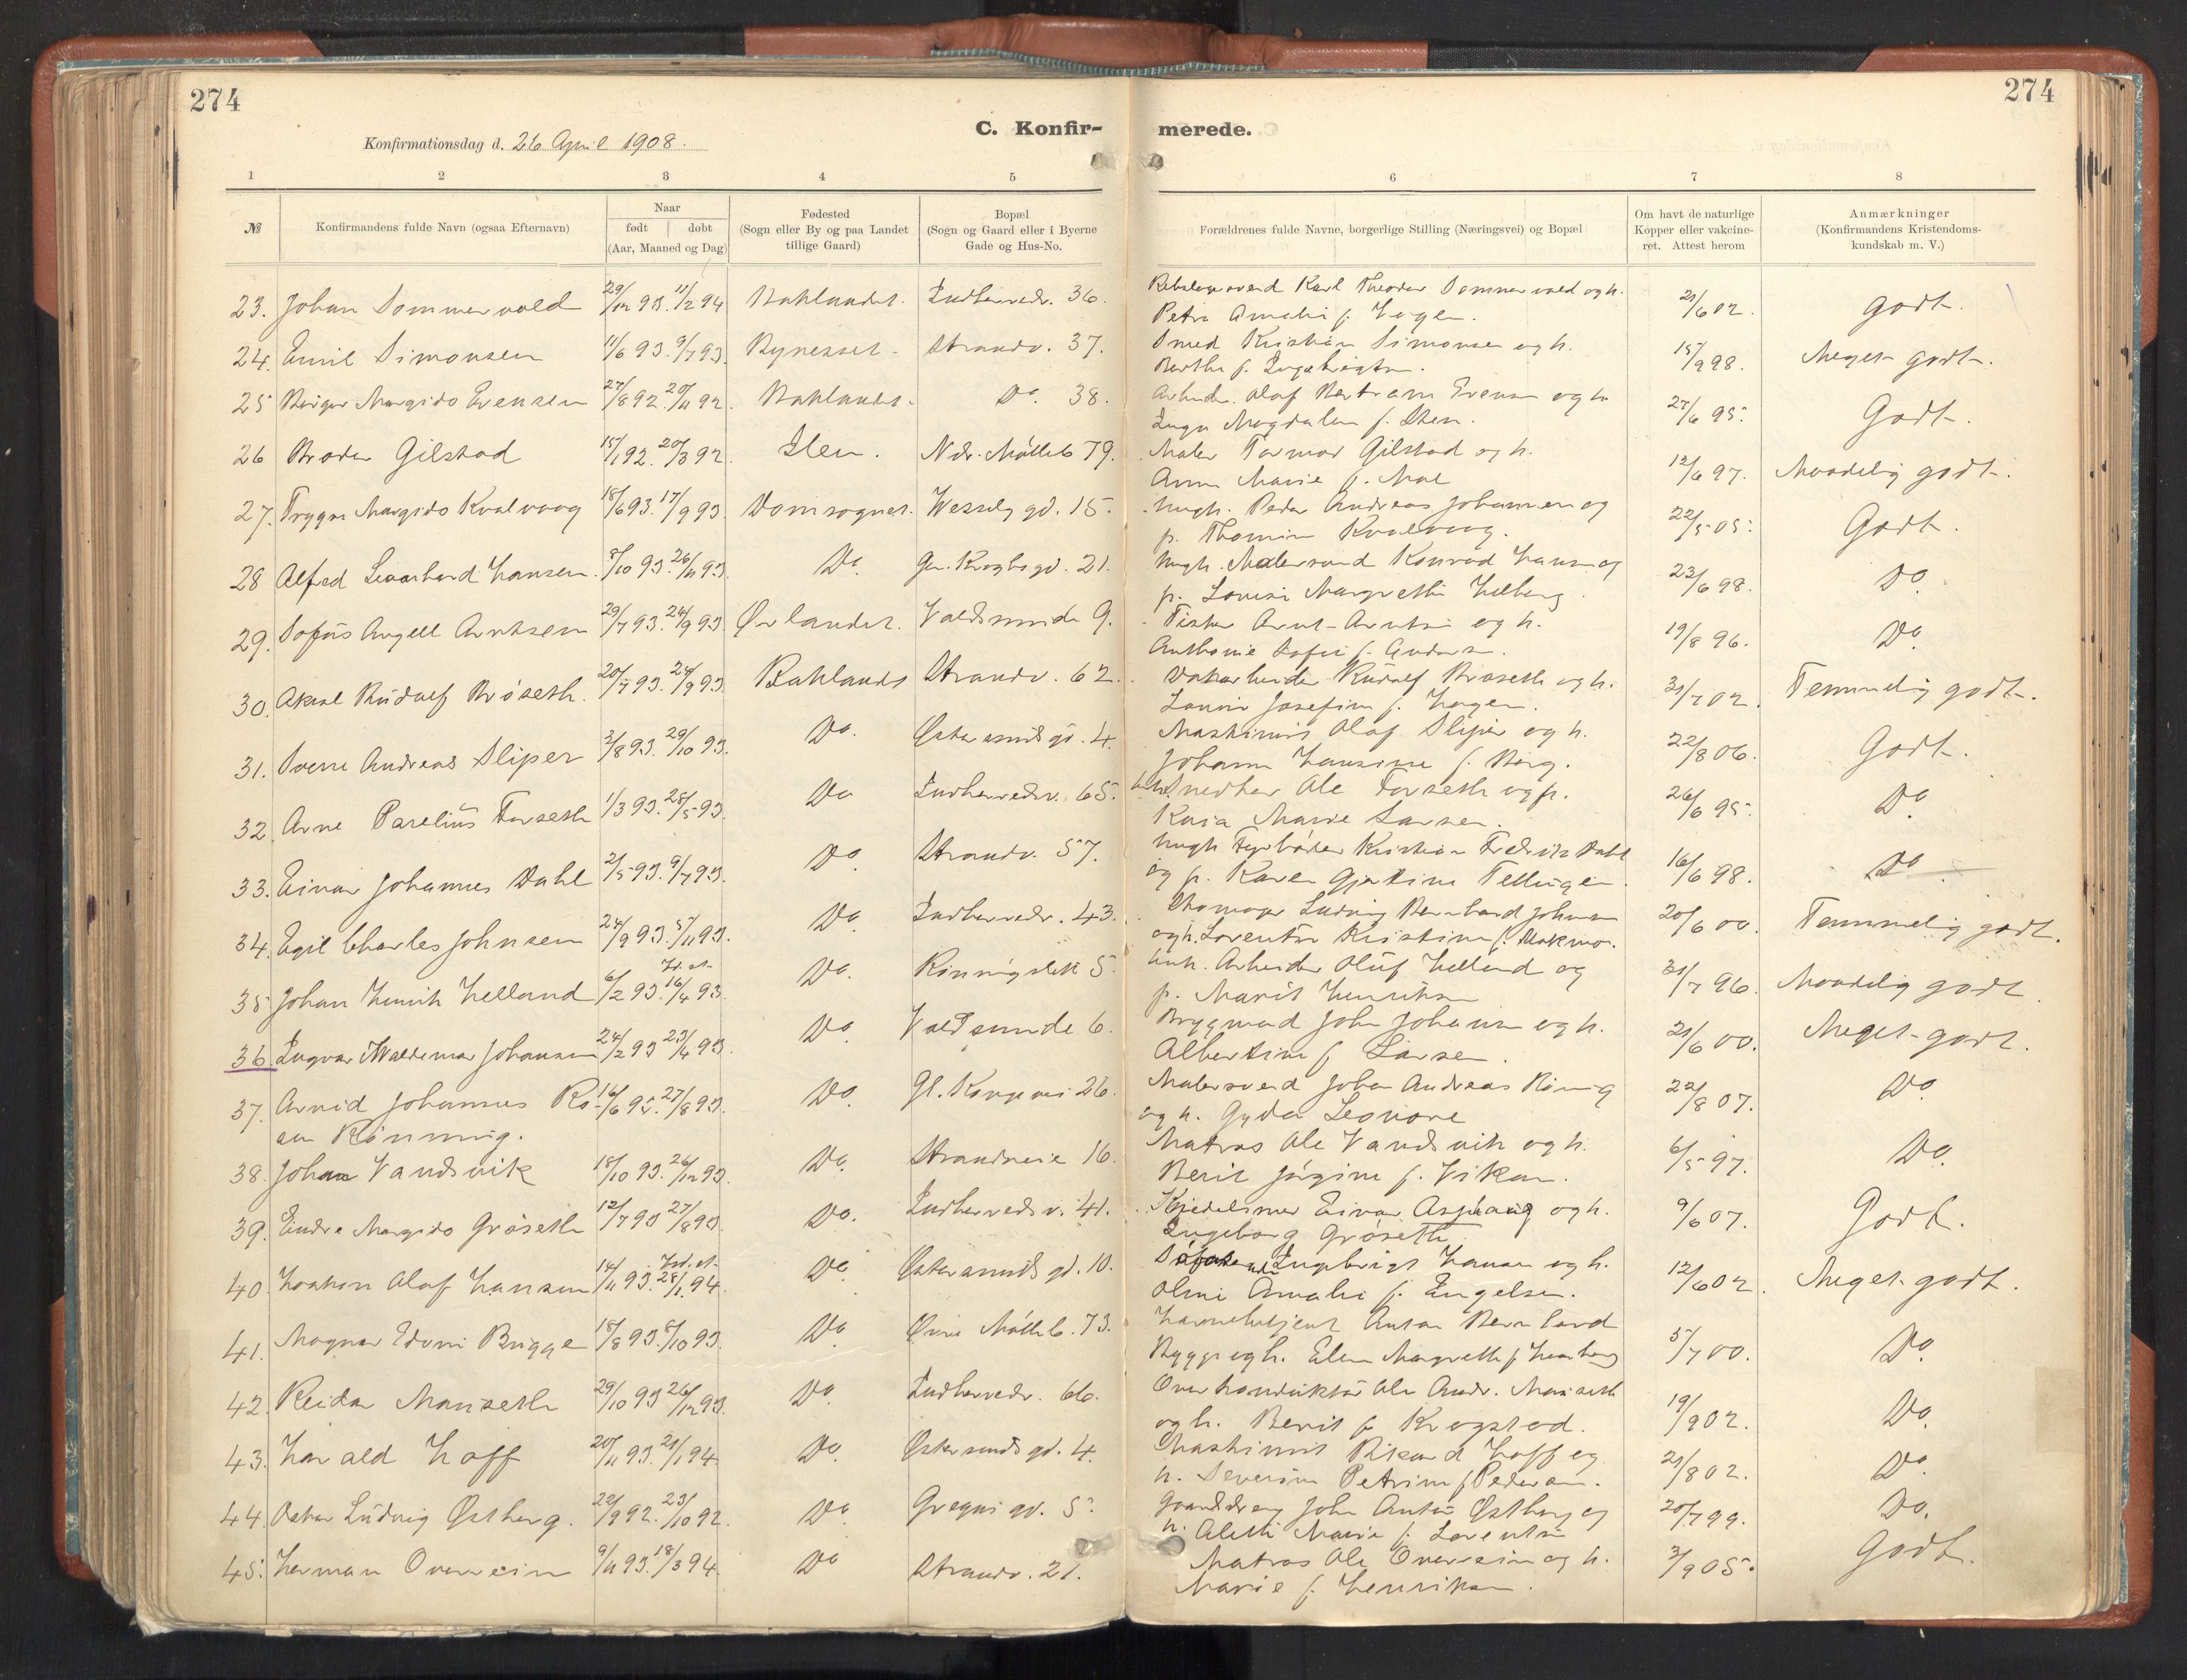 274
274
Konfirmationsdag d. 26 April 1908.
C. Konfir-
merede.
1 2 3 4 5 6 7 8
№
Konfirmandens fulde Navn (ogsaa Efternavn)
Naar
født døbt
(Aar, Maaned og Dag)
Fødested
(Sogn eller By og paa Landet
tillige Gaard)
Bopæl
(Sogn og Gaard eller i Byerne
Gade og Hus-No.
Forældrenes fulde Navne, borgerlige Stilling (Næringsvei) og Bopæl
Om havt de naturlige
Kopper eller vakcine-
ret. Attest herom
Anmærkninger
(Konfirmandens Kristendoms-
kundskab m. V.)
23. Johan Sommervold 29/12 93. 11/2 94 Baklandet. Indherredv. 36. Karl Theodor Sommervold og h. 21/6 02. godt.
Petra Amalie f. Hagen.
24. Emil Simonsen 11/6 93. 9/7 93 Bynesset. Strandv. 37. Smed Kristian Simonsen og h. 15/9 98. Meget godt.
Berthe f. Ingebrigtsen.
25 Birger Margido Evensen 27/8 92. 20/11 92. Baklandet. Do. 38. Arbeider Olaf Bertram Evensen og h. 27/6 95. Godt.
Inga Magdalene f. Steen.
26 Broder Gilstad 15/1 92. 20/3 92. Ilen. Ndr. Mølleb 79. Maler Tormod Gilstad og h. 12/6 97. Maadelig godt.
Anna Marie f. Moe
27. Trygve Margido Kvalvaag 18/6 93. 17/9 93 Domsognet. Wessels gd. 15. Ungk. Peder Andreas Johannesen og 22/5 05. Godt.
p. Thomine Kvalvaag.
28 Alfred Leonhard Hansen. 8/10 93. 26/11 93. Do. Gen. Kroghs gd. 21. Ungk. Malersvend Konrad Hansen og 23/6 98. Do.
p. Lovise Margrethe Helberg.
29. Sofus Angell Arntsen 29/7 93. 24/9 93 Ørlandet. Voldsminde 9. Fisker Arnt Arntsen og h. 19/8 96. Do.
Anthonie Sofie f. Andersen.
30. Aksel Rudolf Brøseth. 20/7 93. 24/9 93 Baklandet Strandv. 62. Rudolf Brøseth og h. 31/7 02. Temmelig godt.
Josefine f. Hagen.
31. Sverre Andreas Sliper 3/8 93. 29/10 93. Do. Østersunds gd. 4. Maskinist Olaf Sliper og h. 22/8 06. Godt.
Johanna Hansine f. Berg.
32. Arne Parelius Forseth 1/3 93. 28/5 93. Do Indherredsv. 65. Snedker Ole Forseth og p. 26/6 95. Do.
Kaia Marie Larsen.
33. Einar Johannes Dahl 2/5 93. 9/7 93. Do. Strandv. 57. Ungk Fyrbøder Kristian Fredrik Dahl 16/6 98. Do.
og p. Karen Gjertine Tellugen.
34. Egil Charles Johnsen 24/9 93. 5/11 93. Do. Indherredv. 43. Ludvig Bernhard Johnsen 20/6 00. Temmelig godt.
og h. Lorentse Kristine f. Mokmo.
35 Johan Henrik Helland 6/2 93. 16/4 93. Do. Rønningslett 5. Arbeider Oluf Helland og 31/7 96. Maadelig godt.
p. Marit Henriksen
36. Ingvar Waldemar Johansen 24/2 93 23/4 93. Do. Voldsminde 6. Brygmand John Johansen og h. 21/6 00. Meget godt.
Albertine f. Larsen.
37. Arvid Johannes Ro- 16/6 93. 27/8 93. Do. Gl. Kongevei 26. Malersvend Johan Andreas Rønning 22/8 07. Do.
en Rønning. og h. Gyda Leonore
38. Johan Vandsvik 18/10 93. 26/12 93. Do. Strandveie 16. Matros Ole Vandsvik og h. 6/5 97. Do.
Berit Jørgine f. Vikan.
39. Endre Margido Grøseth 12/7 93 27/8 93. Do. Indherredsv. 41. Kjedelsmed Einar Asphaug og h. 9/6 07. Godt.
Ingeborg Grøseth
40. Haakon Olaf Hansen 14/11 93. 28/1 94. Do. Østersunds gd. 10. Ingebrigt Hansen og h. 12/6 02. Meget godt.
Oline Amalie f. Engelsen.
41. Magnar Edvin Brygge 18/8 93. 8/10 93. Do Øvre Mølleb. 73. Anton Bernhard 5/7 00. Do.
Brygge og h. Elen Margrethe f.
42. Reidar Mauseth 29/10 93 26/12 93. Do. Indherredv. 66. Overkonduktør Ole Andr. Mauseth 19/9 02. Do.
og h. Berit f. Krogstad.
43. Harald Hoff 20/11 93. 21/1 94. Do. Østersunds gd. 4. Maskinist Rikard Hoff og 21/8 02. Do.
h. Severine Petrine f. Pedersen.
44. Oskar Ludvig Østberg. 22/9 92. 23/10 92. Do. Gregus gd. 5. Gaardsdreng John Anton Østberg og 20/7 99. Do.
h. Alette Marie f. Lorentsen
45. Herman Overrein 9/11 93. 18/3 94. Do Strandv. 21. Matros Ole Overrein og h. 3/9 05. Godt.
Marie f. Henriksen.